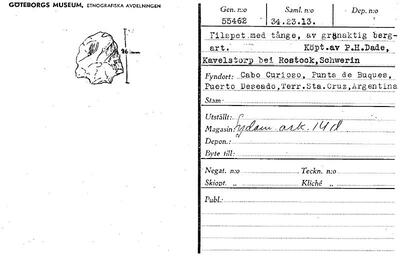 GÖTEBORGS MUSEUM, ETNOGRAFISKA AVDELNINGEN
Gen. n:o Saml. n:o Dep. n:o
55462 34.23.13.
Pilspet med tånge, av grönaktig berg-
art. Köpt.av P.H.Dade,
Kavelstorp bei Rostook,Schwerin
Fyndort: Cabo Curioso, Punta de Buques,
Puerto Deseado,Terr.Sta.Cruz,Argentina
Stam:
Utställt:
Magasin: Sydam ark. 14 d
Depon.:
Byte till:
Negat. n:o Teckn. n:o
Skiopt. „ Kliché „
Publ.: